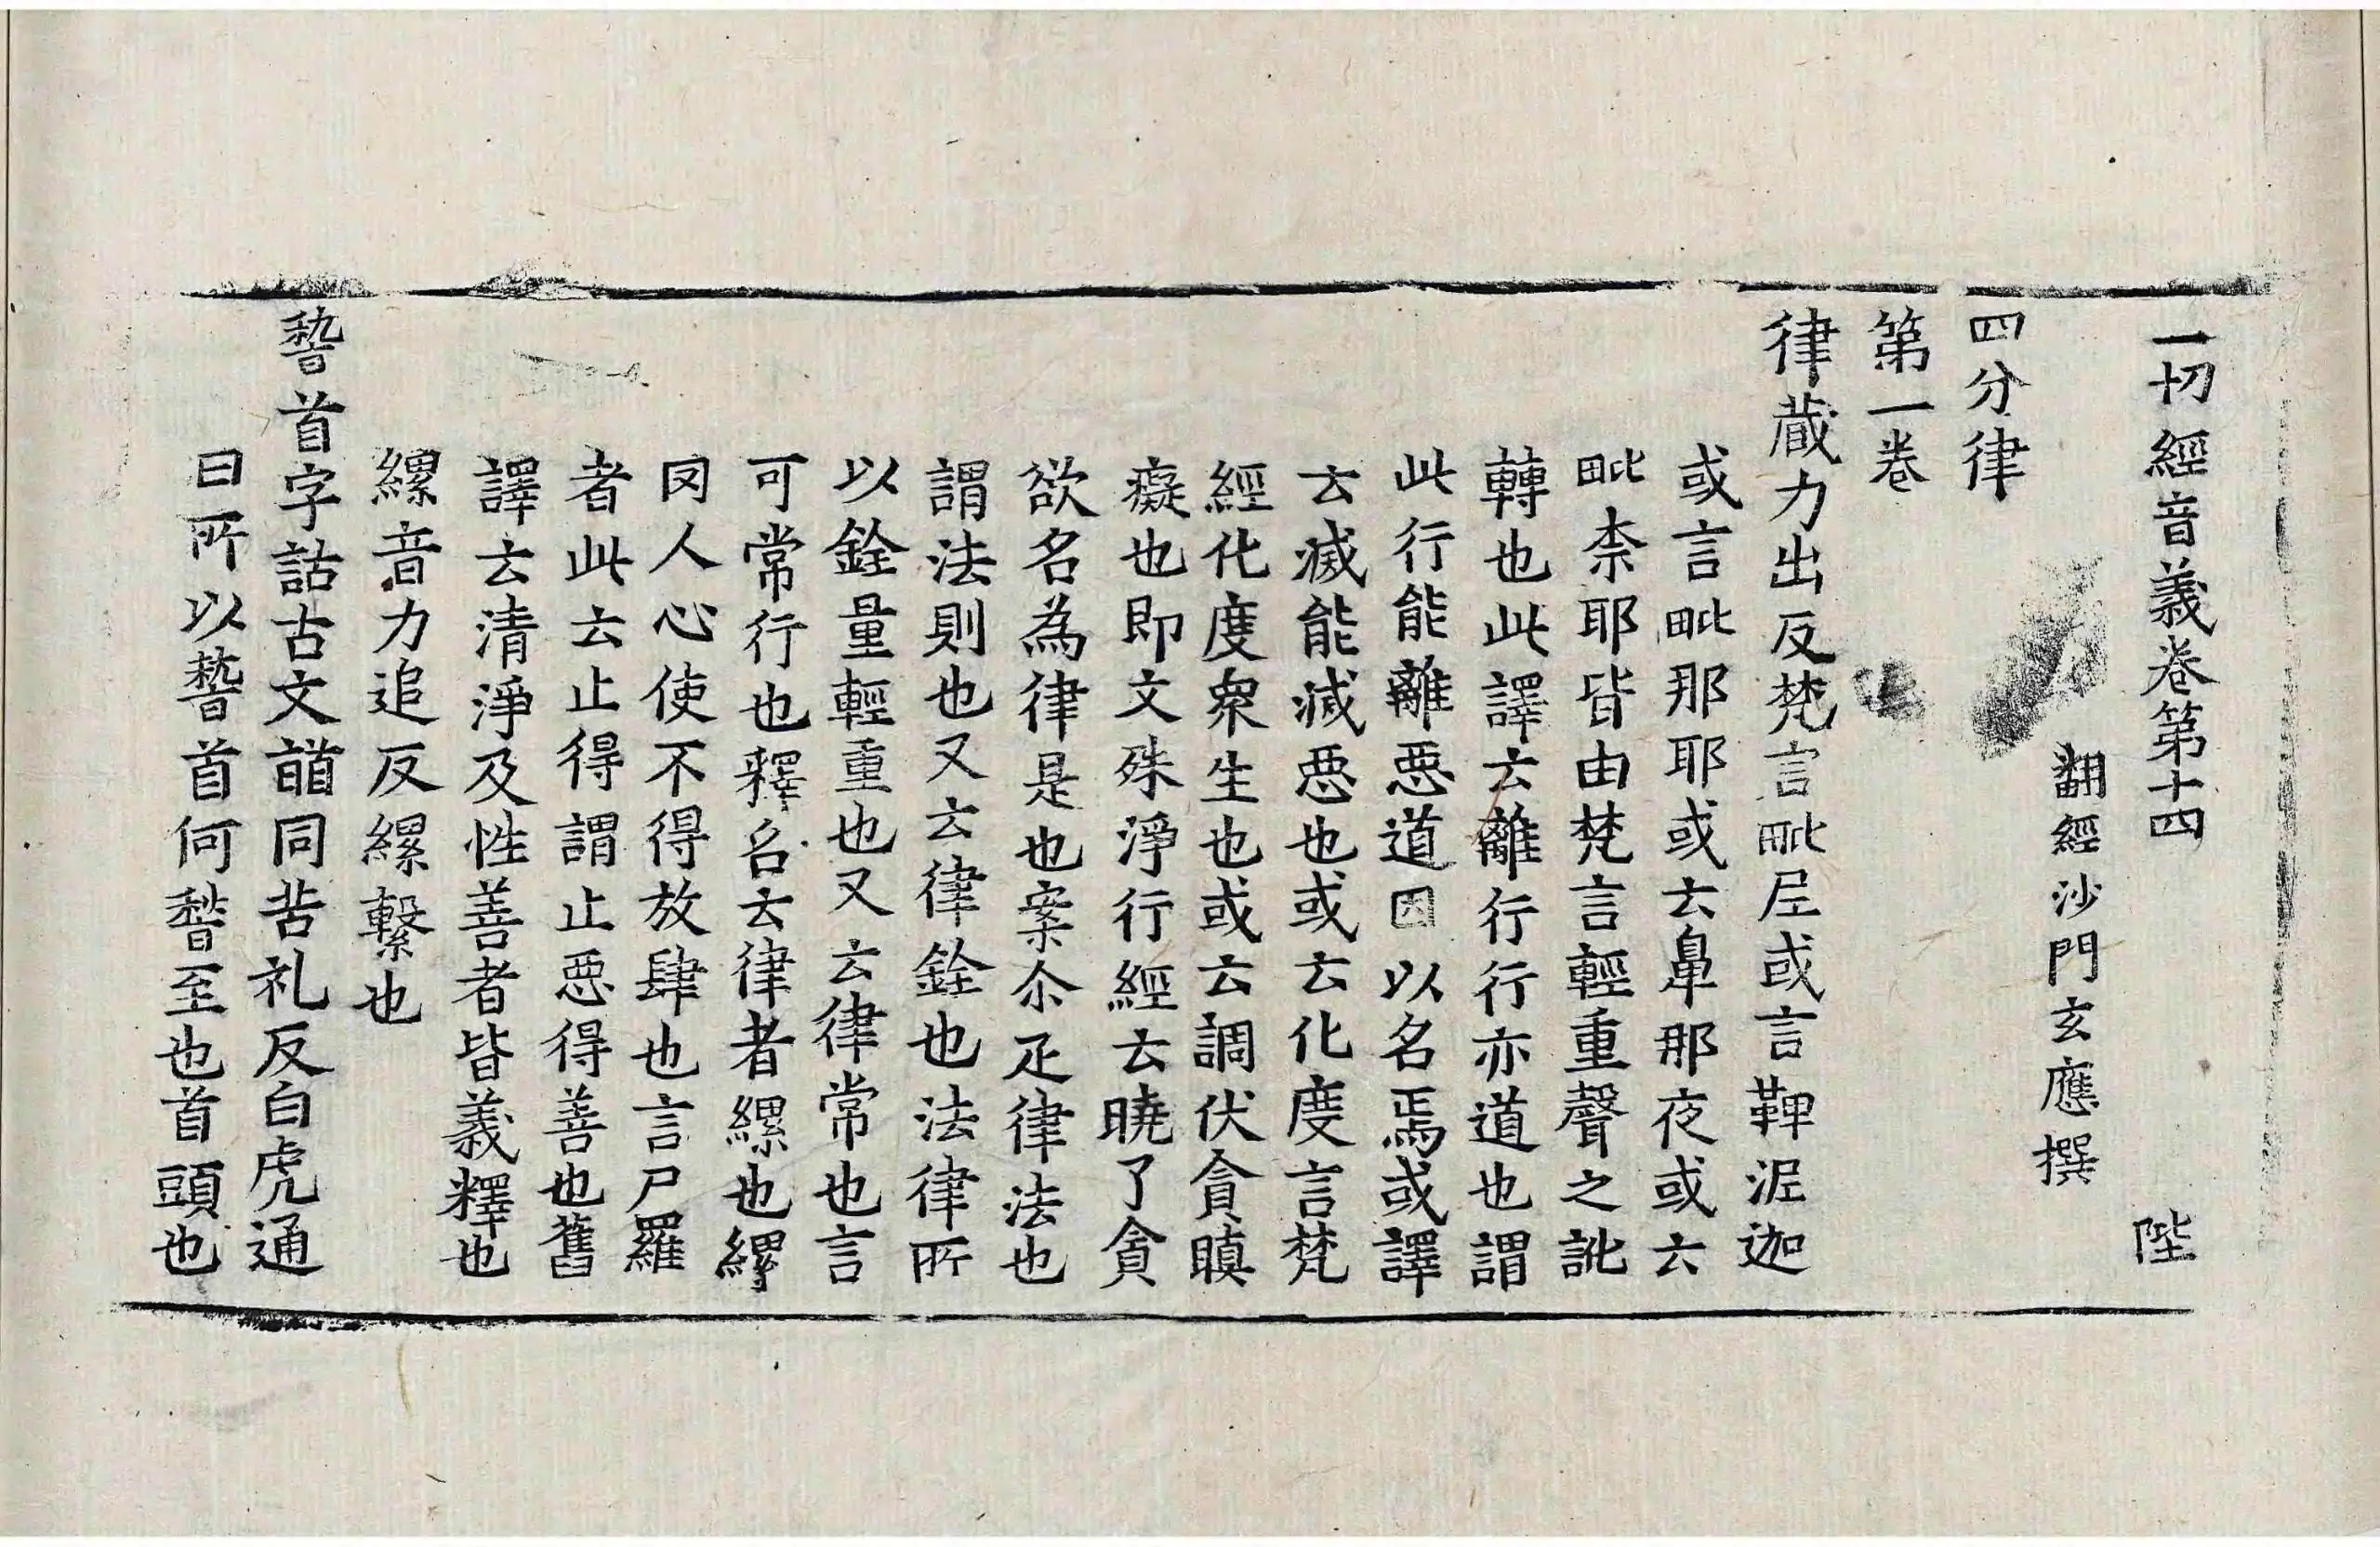 一切經音義卷第十四 陛
翻經沙門玄應撰
四分律
第一卷
律藏力出反梵言毗尼或言鞞泥迦
或言毗那耶或云鼻那夜或云
毗柰耶皆由梵言輕重聲之訛
轉也此譯云離行行亦道也謂
此行能離惡道因以名焉或譯
云滅能滅惡也或云化度言梵
經化度衆生也或云調伏貪瞋
癡也即文殊淨行經云曉了貪
欲名為律是也案尒疋律法也
謂法則也又云律銓也法律所
以銓量輕重也又云律常也言
可常行也釋名云律者縲也縲
囚人心使不得放肆也言尸羅
者此云止得謂止惡得善也舊
譯云清淨及性善者皆義釋也
縲音力追反縲繫也
𥡴首字詁古文𩒨同苦礼反白虎通
曰所以𥡴首何𥡴至也首頭也